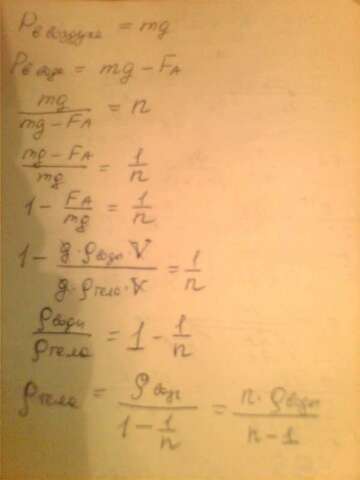 P в воздухе = mg
P в воде = mg - FA
mg / mg - FA = n
mg - FA / mg = 1 / n
1 - FA / mg = 1 / n
1 - g · ρ воды · V / g · ρ тела · V = 1 / n
ρ воды / ρ тела = 1 - 1 / n
ρ тела = ρ воды / 1 - 1 / n = n · ρ воды / n - 1